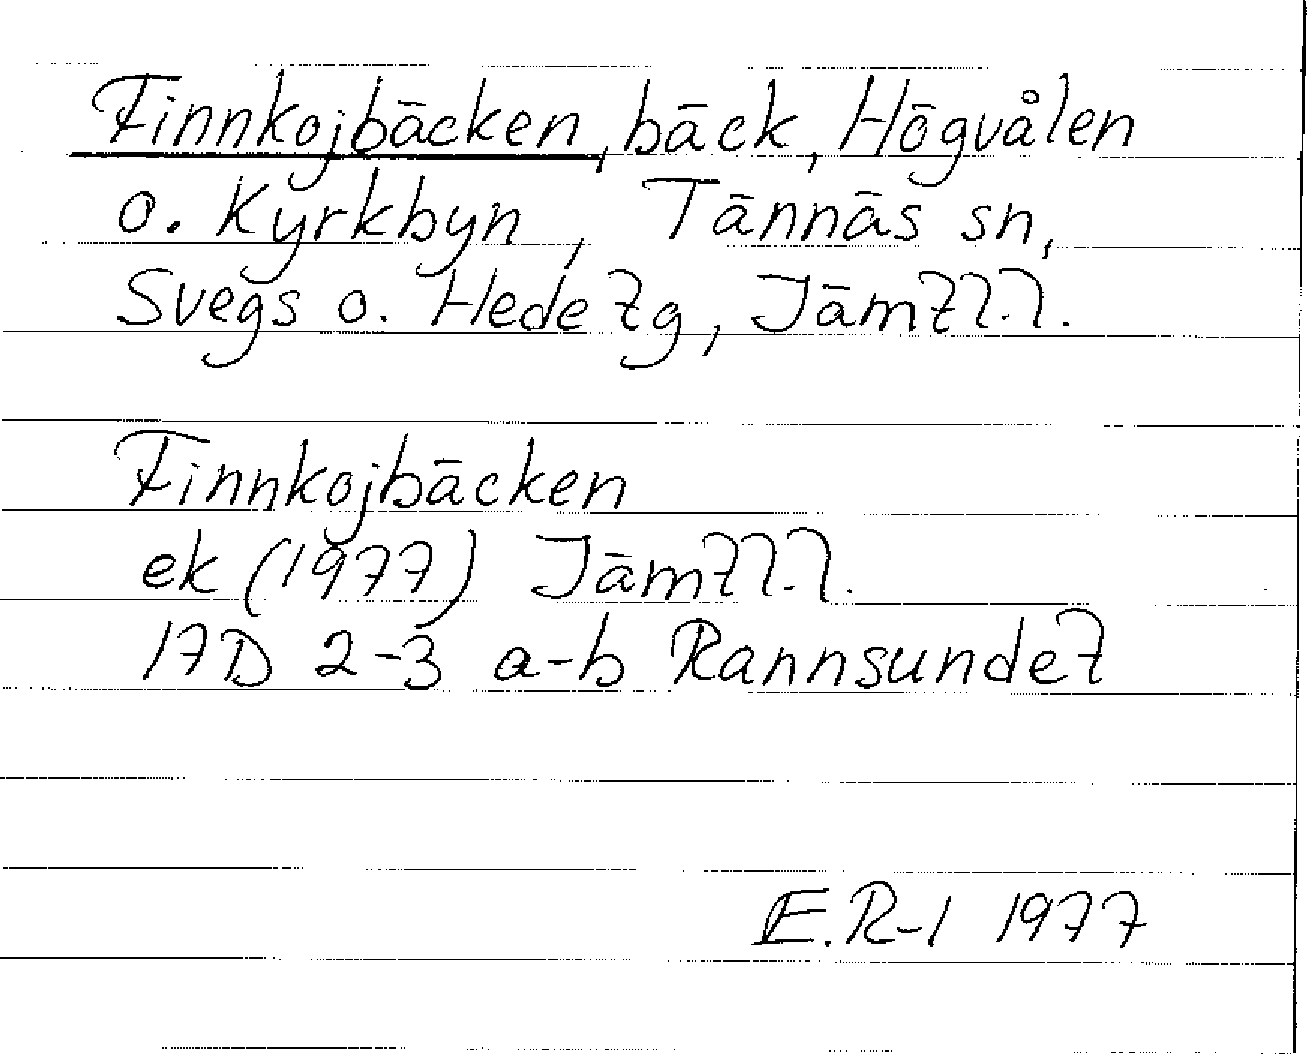 Finnkojbäcken, bäck, Högvålen
o. Kyrkbyn, Tännäs sn,
Svegs o. Hede tg, Jämtl.l.
Finnkojbäcken
ek (1977) Jämtl.l.
17D 2-3 a-b Rannsundet
E.R-l 1977